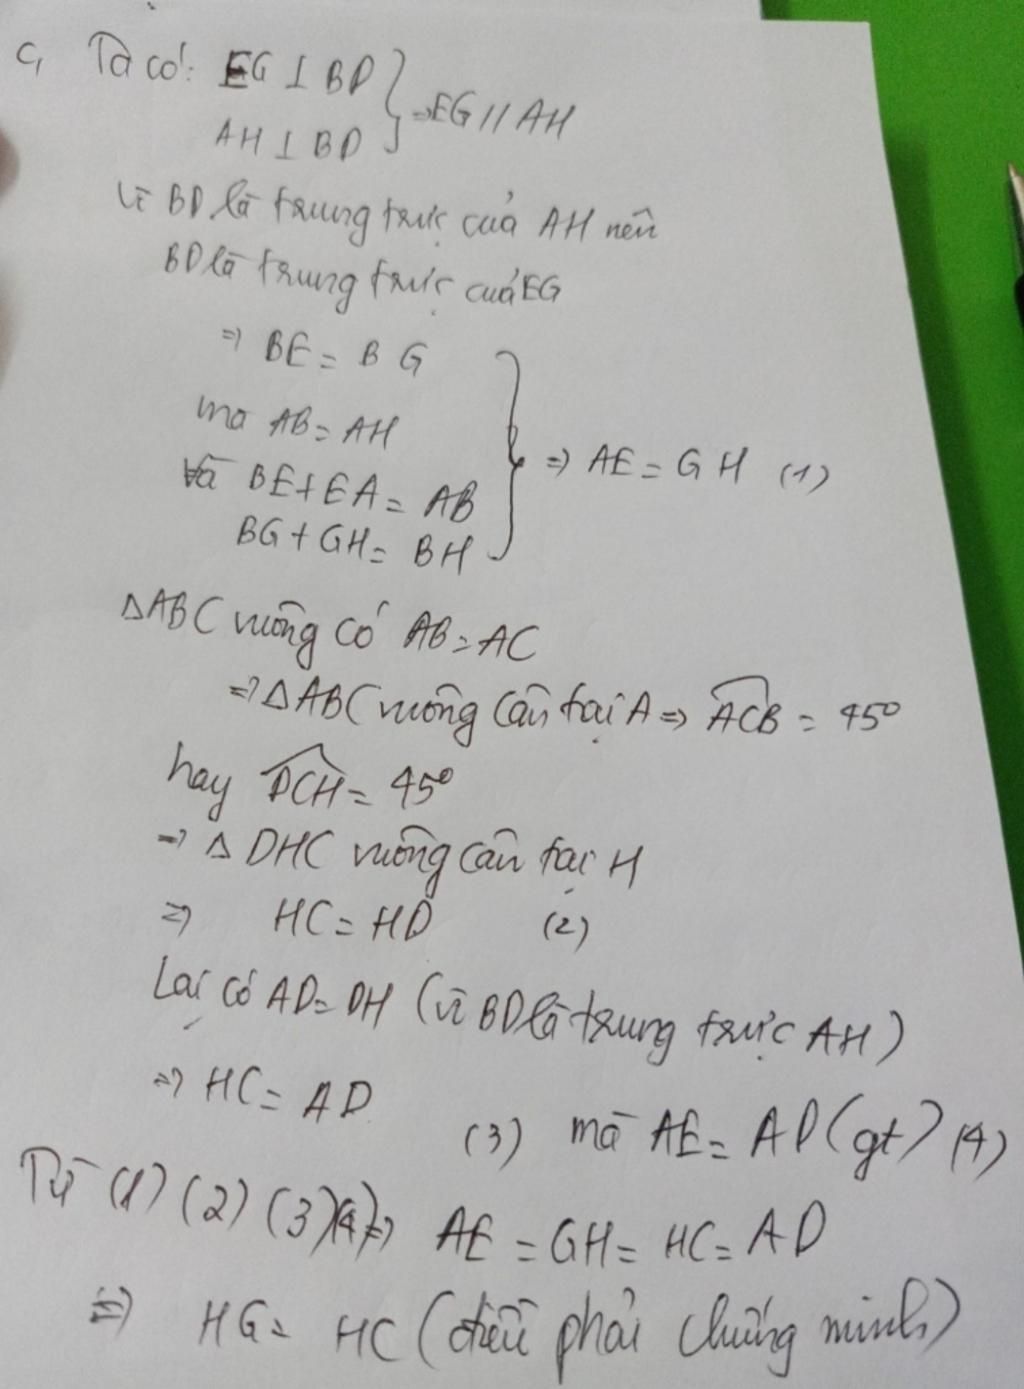 c, Ta có: EG ⊥ BD
AH ⊥ BD } ⇒ EG // AH
Vì BD là trung trực của AH nên
BD là trung trực của EG
⇒ BE = BG
mà AB = AH
và BE + EA = AB
BG + GH = BH } ⇒ AE = GH (1)
ΔABC vuông có AB = AC
⇒ ΔABC vuông cân tại A ⇒ ACB = 45°
hay DCH = 45°
⇒ Δ DHC vuông cân tại H
⇒ HC = HD (2)
Lại có AD = DH (vì BD là trung trực AH)
⇒ HC = AD
(3) mà AE = AD (gt) (4)
Từ (1) (2) (3) (4) ⇒ AE = GH = HC = AD
⇒ HG = HC (điều phải chứng minh)